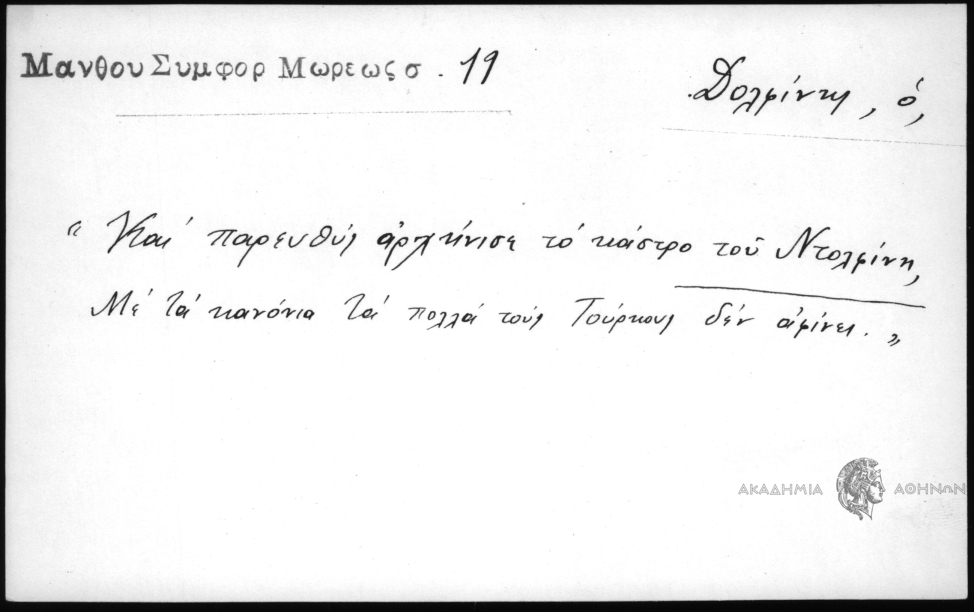 Μανθου Συμφορ Μωρεως σ. 19
Δολφίνης, ὁ,
“Καὶ παρευθὺς ἀρχήνισε τὸ κάστρο τοῦ Ντολφίνη,
Μὲ τὰ κανόνια τὰ πολλὰ τοὺς Τούρκους δὲν ἀφίνει.”
ΑΚΑΔΗΜΙΑ ΑΘΗΝΩΝ